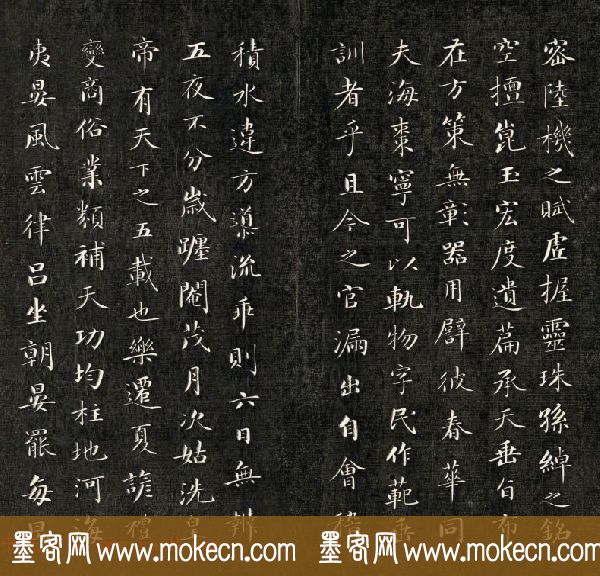 密陸機之賦虛握靈珠孫綽之銘
空擅崑玉宏度遺篇承天垂旨布
在方策無彰器用譬彼春華同
夫海棗寧可以軌物字民作範垂
訓者乎且今之官漏出自會稽
積水違方導流乖則六日無辨
五夜不分歲躔閹茂月次姑洗皇
帝有天下之五載也樂遷夏諺禮
變商俗業類補天功均柱地河海
夷晏風雲律呂坐朝晏罷每旦
墨客网 www.mokecn.com 墨客网 www.mokecn.com